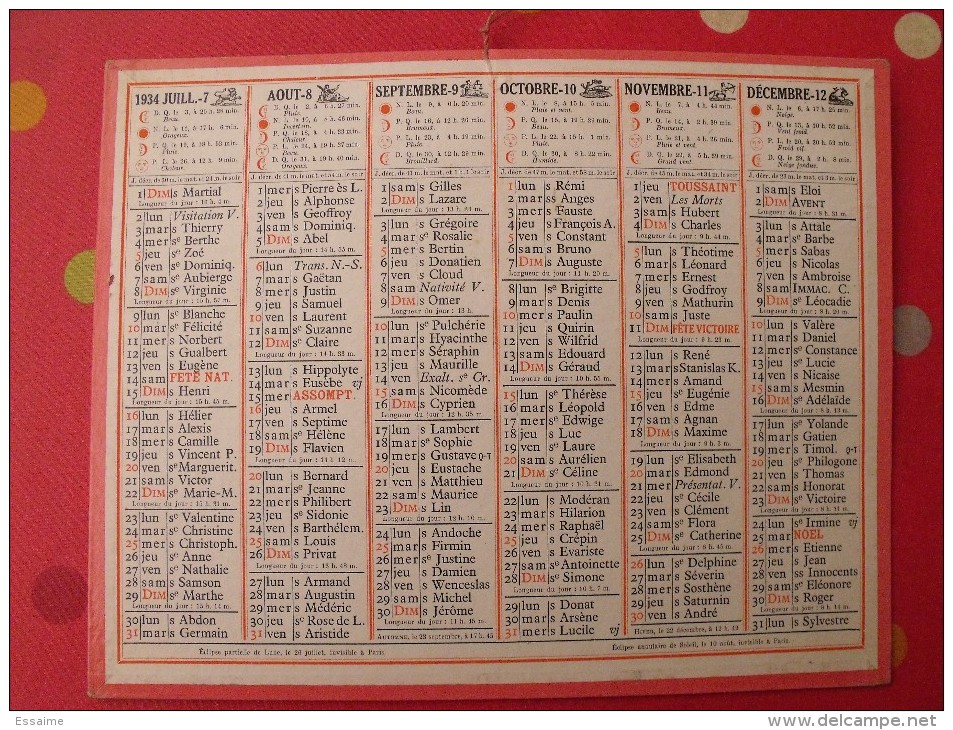 1934 JUILL.-7
1 DIM s Martial
2 lun Visitation V.
3 mar s Thierry
4 mer se Berthe
5 jeu s Zoé
6 ven s Dominiq.
7 sam s Aubierge
8 DIM se Virginie
9 lun se Blanche
10 mar se Félicité
11 mer s Norbert
12 jeu s Gualbert
13 ven s Eugène
14 sam FETE NAT.
15 DIM s Henri
16 lun s Hélier
17 mar s Alexis
18 mer s Camille
19 jeu s Vincent P.
20 ven se Marguerit.
21 sam s Victor
22 DIM se Marie-M.
23 lun se Valentine
24 mar se Christine
25 mer s Christoph.
26 jeu se Anne
27 ven se Nathalie
28 sam s Samson
29 DIM se Marthe
30 lun s Abdon
31 mar s Germain
AOUT-8
1 mer s Pierre ès L.
2 jeu s Alphonse
3 ven s Geoffroy
4 sam s Dominiq.
5 DIM s Abel
6 lun Trans. N.-S.
7 mar s Gaëtan
8 mer s Justin
9 jeu s Samuel
10 ven s Laurent
11 sam se Suzanne
12 DIM se Claire
13 lun s Hippolyte
14 mar s Eusèbe vj
15 mer ASSOMPT.
16 jeu s Armel
17 ven s Septime
18 sam se Hélène
19 DIM s Flavien
20 lun s Bernard
21 mar se Jeanne
22 mer s Philibert
23 jeu se Sidonie
24 ven s Barthélem.
25 sam s Louis
26 DIM s Privat
27 lun s Armand
28 mar s Augustin
29 mer s Médéric
30 jeu se Rose de L.
31 ven s Aristide
SEPTEMBRE-9
1 sam s Gilles
2 DIM s Lazare
3 lun s Grégoire
4 mar se Rosalie
5 mer s Bertin
6 jeu s Donatien
7 ven s Cloud
8 sam Nativité V.
9 DIM s Omer
10 lun se Pulchérie
11 mar s Hyacinthe
12 mer s Séraphin
13 jeu s Maurille
14 ven Exalt. se Cr.
15 sam s Nicomède
16 DIM s Cyprien
17 lun s Lambert
18 mar se Sophie
19 mer s Gustave Q-T
20 jeu s Eustache
21 ven s Matthieu
22 sam s Maurice
23 DIM s Lin
24 lun s Andoche
25 mar s Firmin
26 mer se Justine
27 jeu s Damien
28 ven s Wenceslas
29 sam s Michel
30 DIM s Jérôme
AUTOMNE, le 23 septembre, à 17 h. 45
OCTOBRE-10
1 lun s Rémi
2 mar ss Anges
3 mer s Fauste
4 jeu s François A.
5 ven s Constant
6 sam s Bruno
7 DIM s Auguste
8 lun se Brigitte
9 mar s Denis
10 mer s Paulin
11 jeu s Quirin
12 ven s Wilfrid
13 sam s Edouard
14 DIM s Géraud
15 lun se Thérèse
16 mar s Léopold
17 mer se Edwige
18 jeu s Luc
19 ven se Laure
20 sam s Aurélien
21 DIM se Céline
22 lun s Modéran
23 mar s Hilarion
24 mer s Raphaël
25 jeu s Crépin
26 ven s Evariste
27 sam se Antoinette
28 DIM se Simone
29 lun s Donat
30 mar s Arsène
31 mer se Lucile vj
NOVEMBRE-11
1 jeu TOUSSAINT
2 ven Les Morts
3 sam s Hubert
4 DIM s Charles
5 lun s Théotime
6 mar s Léonard
7 mer s Ernest
8 jeu s Godfroy
9 ven s Mathurin
10 sam s Juste
11 DIM FÊTE VICTOIRE
12 lun s René
13 mar s Stanislas K.
14 mer s Amand
15 jeu se Eugénie
16 ven s Edme
17 sam s Agnan
18 DIM s Maxime
19 lun se Elisabeth
20 mar s Edmond
21 mer Présentat. V.
22 jeu se Cécile
23 ven s Clément
24 sam se Flora
25 DIM se Catherine
26 lun se Delphine
27 mar s Séverin
28 mer s Sosthène
29 jeu s Saturnin
30 ven s André
HIVER, le 22 décembre, à 12 h. 49
DÉCEMBRE-12
1 sam s Eloi
2 DIM AVENT
3 lun s Attale
4 mar se Barbe
5 mer s Sabas
6 jeu s Nicolas
7 ven s Ambroise
8 sam IMMAC. C.
9 DIM se Léocadie
10 lun s Valère
11 mar s Daniel
12 mer se Constance
13 jeu se Lucie
14 ven s Nicaise
15 sam s Mesmin
16 DIM se Adélaïde
17 lun se Yolande
18 mar s Gatien
19 mer s Timol. Q-T
20 jeu s Philogone
21 ven s Thomas
22 sam s Honorat
23 DIM se Victoire
24 lun se Irmine vj
25 mar NOEL
26 mer s Etienne
27 jeu s Jean
28 ven ss Innocents
29 sam se Eléonore
30 DIM s Roger
31 lun s Sylvestre
Éclipse partielle de Lune, le 26 juillet, invisible à Paris.
Éclipse annulaire de Soleil, le 10 août, invisible à Paris.
Essaime
www.delcampe.net